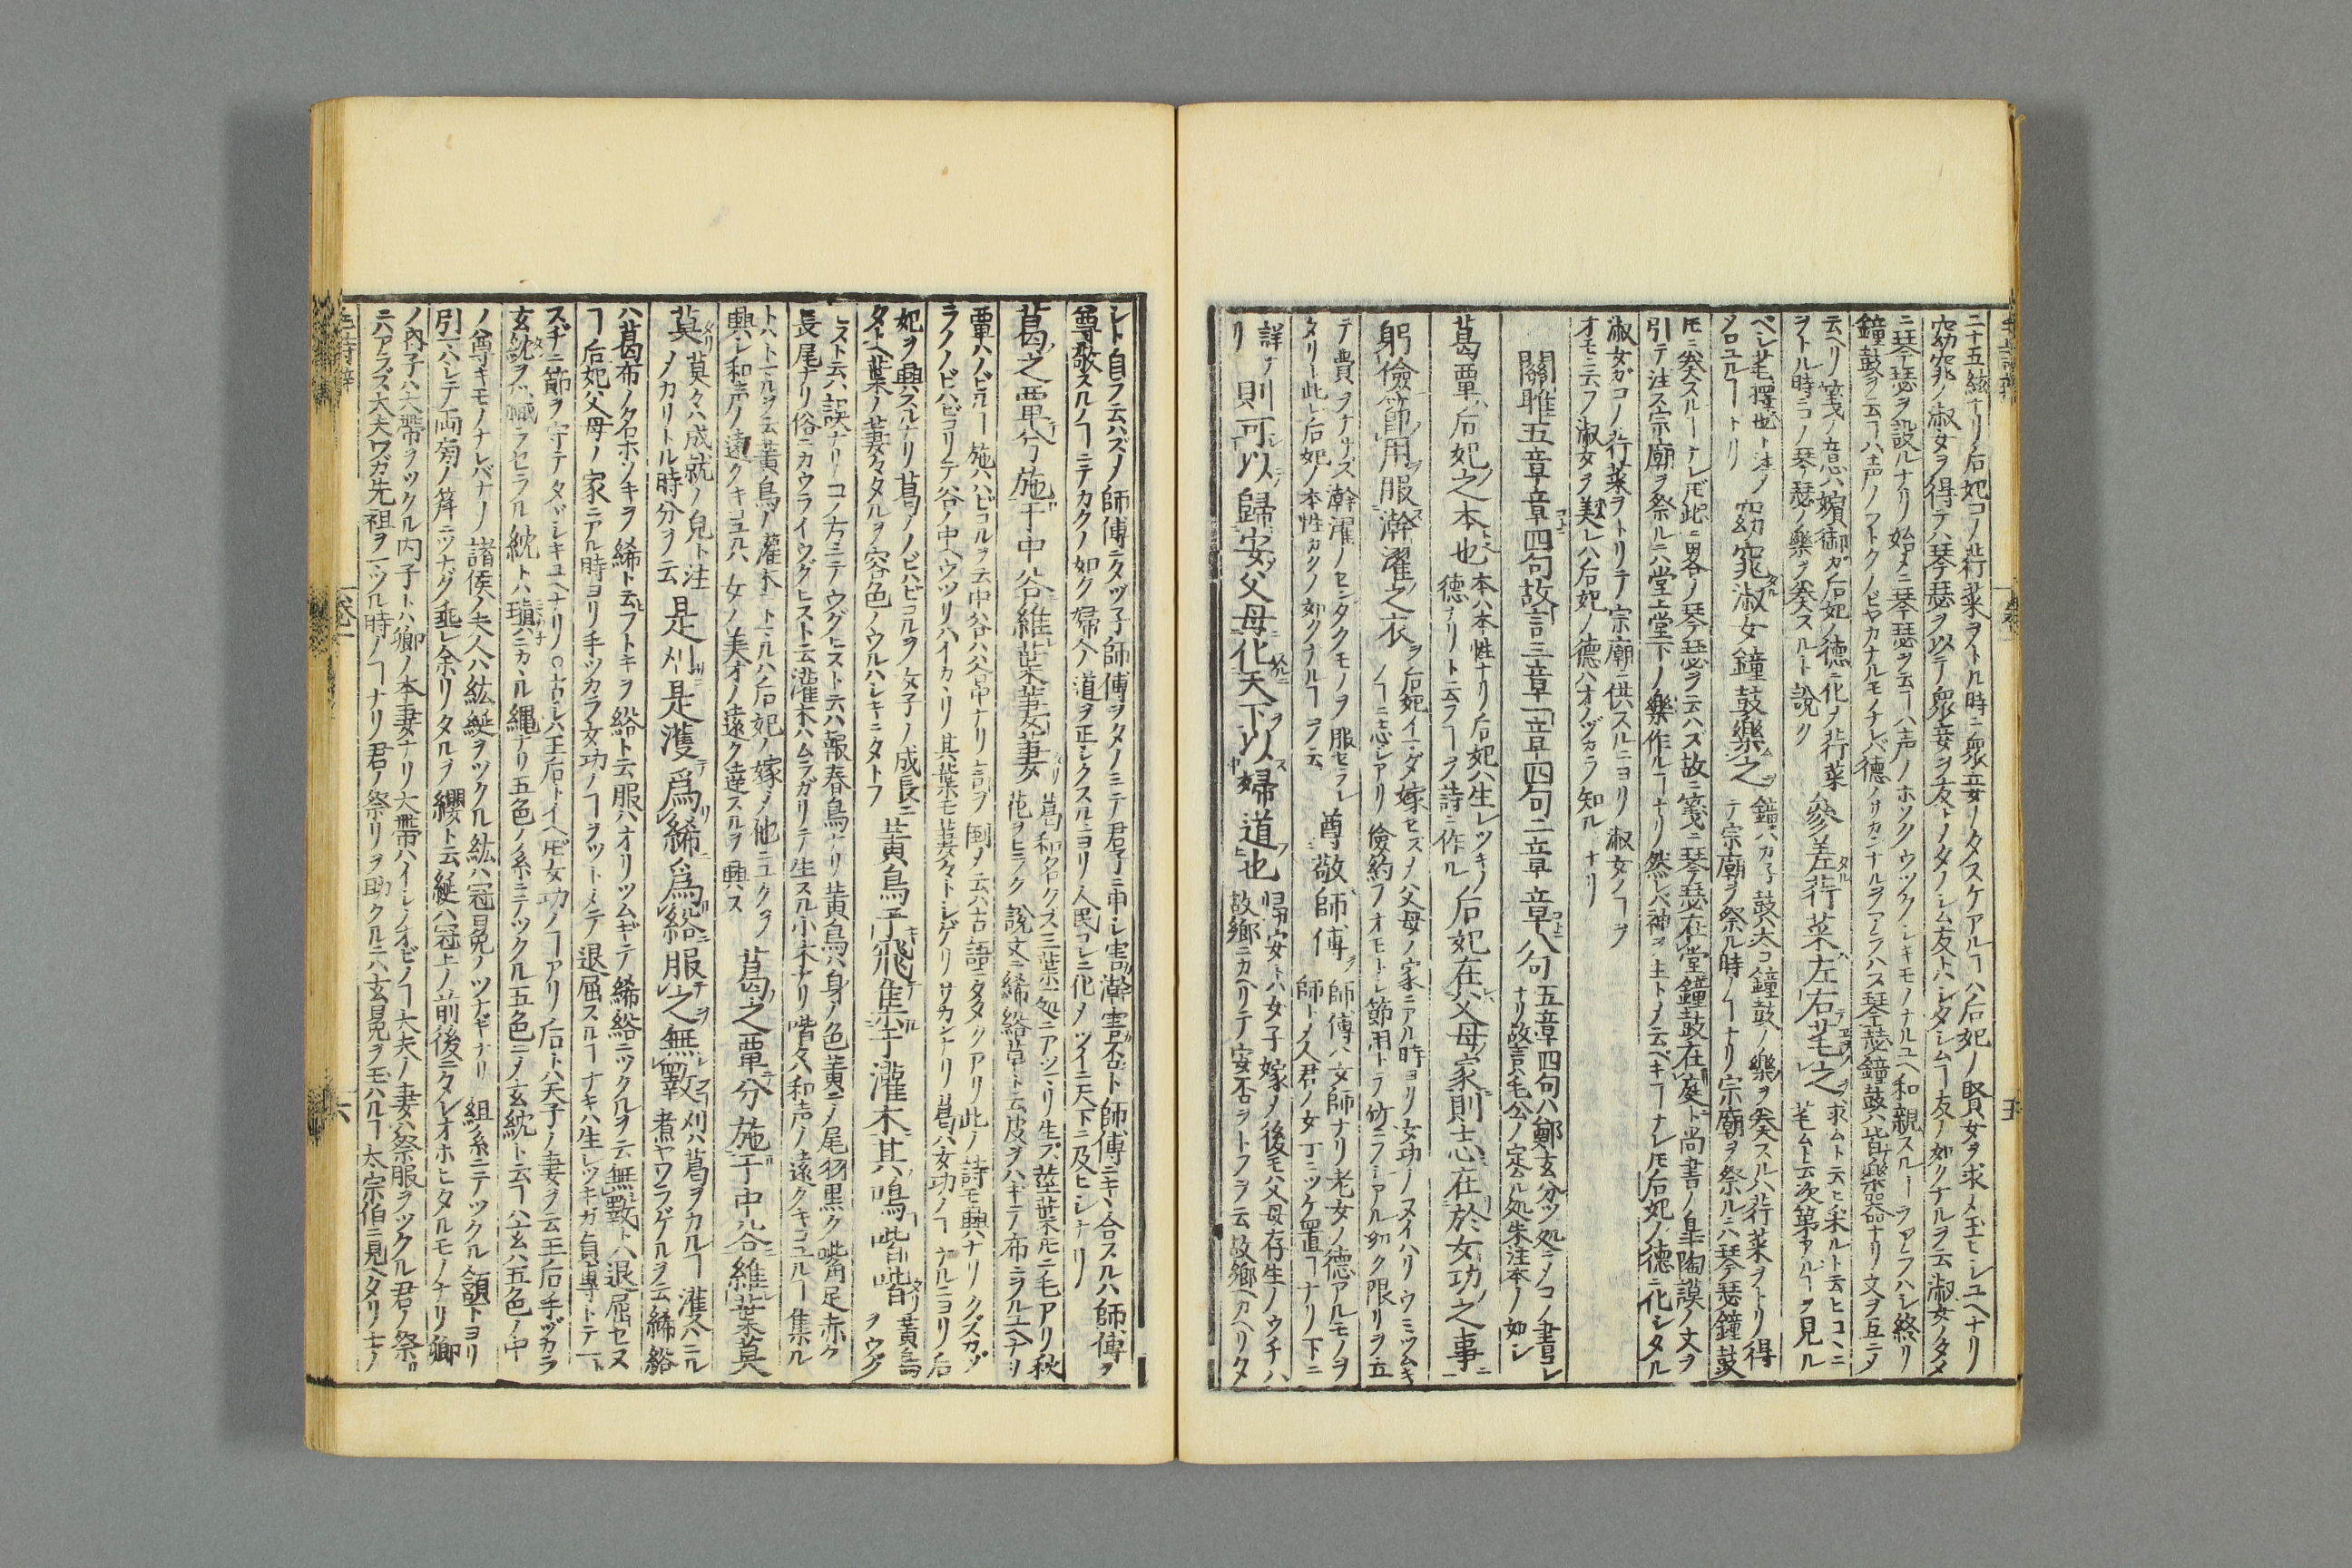 二十五絃ナリ后妃コノ荇菜ヲトル時ニ衆妾ノタスケアルヿハ后妃ノ賢女ヲ求メ玉ヒシユヘナリ
窈窕ノ淑女ヲ得テハ琴瑟ヲ以テ衆妾ヲ友トノタノシム友トハシタシムヿ友ノ如クナルヲ云淑女ノタメ
ニ琴瑟ヲ設ルナリ始メニ琴瑟ヲ云ヿハ声ノホソクウツクシキモノナルユヘ和親スルヿヲアラハシ終リ
鐘鼓ヲ云ヿハ声ノフトクノビヤカナルモノナレバ德ノサカンナルヲアラハス琴瑟鐘鼓ハ皆樂器ナリ文ヲ互ニメ
云ヘリ箋ノ意ハ嬪御ガ后妃ノ德ニ化ノ荇菜
ヲトル時ニコノ琴瑟ノ樂ヲ奏スルト說ク
參差荇菜左右芼之
求ムト云ヒ采ルト云ヒコヽニ
芼ムト云次第アルヿヲ見ル
ベシ芼擇也ト注ノ
ソロユルヿトリ
窈窕淑女鐘鼓樂之
鐘ハカ子鼓ハ太コ鐘鼓ノ樂ヲ奏スルハ荇菜ヲトリ得
テ宗廟ヲ祭ル時ノヿナリ宗廟ヲ祭ルニハ琴瑟鐘鼓
𪜈ニ奏スルヿナレ𪜈此ニ畧ノ琴瑟ヲ云ハズ故ニ箋ニ琴瑟在堂鐘鼓在庭ト尚書ノ皐陶謨ノ文ヲ
引テ注ス宗廟ヲ祭ルニハ堂上堂下ノ樂作ルヿナリ然レバ神ヲ主トメ云ベキヿナレ𪜈后妃ノ德ニ化シタル
淑女ガコノ荇菜ヲトリテ宗廟ニ供スルニヨリ淑女ノヿヲ
オモニ云フ淑女ヲ美レハ后妃ノ德ハオノヅカラ知ルナリ
關雎五章章四句故言三章一章四句二章章八句
五章四句ハ鄭玄分ツ処ニノコノ書シ
ナリ故言ハ毛公ノ定ル処朱注本ノ如シ
葛覃后妃之本也
本ハ本性ナリ后妃ハ生レツキノ
德ナリト云フヿヲ詩ニ作ル
后妃在父母家則志在於女功之事
躬儉節用服澣濯之衣
后妃イマダ嫁セズノ父母ノ家ニアル時ヨリ女功ノヌイハリウミツムキ
ノヿニ志シアリ儉約ヲオモトシ節用トテ竹ニフシアル如ク限リヲ立
テ費ヲナサズ澣濯ノセンダクモノヲ服セラレ
タリ此レ后妃ノ本性カクノ如クナルヿヲ云
尊敬師傅
師傅ハ女師ナリ老女ノ德アルモノヲ
師トノ久君ノ女丁ニツケ置ヿナリ下ニ
詳ナリ
則可以歸安父母化天下以婦道也
帰安トハ女子嫁ノ後モ父母存生ノウチハ
故鄉ニカヘリテ安否ヲトフヲ云故鄉ヘカヘリタ
シト自ラ云ハズノ師傅ニタヅ子師傅ヲタノミテ君子ニ申シ害澣害否ト師傅ニキヽ合スルハ師傅ヲ
尊敬スルノヿニテカクノ如ク婦人ノ道ヲ正シクスルニヨリ人民コレニ化メツイニ天下ニ及ヒシナリ
葛之覃兮施于中谷維葉萋萋
葛和名クズ三葉一処ニアツマリ生ズ莖葉𪜈ニ毛アリ秋
花ヲヒラク說文ニ絺綌草ト云皮ヲハギテ布ニヲルユヘナリ
覃ハノビルヿ施ハハビコルヲ云中谷ハ谷中ナリ
ラノノビハビコリテ谷ノ中ヘウツリハイカヽリ其葉モ萋々トシゲリサカンナリ葛ハ女功ノヿナルニヨリ后
妃ヲ興スルナリ葛ノノビハビコルヲ女子ノ成長ニ
タトヘ葉ノ萋々タルヲ容色ノウルハシキニタトフ
黃鳥于飛集于灌木其鳴喈喈
黃鳥
ヲウグ
ヒスト云ハ誤ナリコノ方ニテウグヒスト云ハ報春鳥ナリ黃鳥ハ身ノ色黃ニノ尾羽黒ク嘴角足赤ク
長尾ナリ俗ニカウライウグヒスト云灌木ハムラガリテ生スル小木ナリ喈々ハ和声ノ遠クキコユルヿ集ル
トハトマルヲ云黃鳥ノ灌木ニトマルハ后妃ノ嫁メ他ニユクヲ
興シ和声ノ遠クキコユルハ女ノ美才ノ遠ク達スルヲ興ス
葛之覃兮施于中谷維葉莫
莫
莫々ハ成就ノ皃ト注
ノカリトル時分ヲ云
是刈是濩爲絺爲綌服之無斁
刈ハ葛ヲカルヿ濩ハニル
煮ヤワラゲルヲ云絺綌
ハ葛布ノ名ホソキヲ絺ト云フトキヲ綌ト云服ハオリツムギテ絺綌ニツクルヲ云無斁ハ退屈セヌ
ヿ后妃父母ノ家ニアル時ヨリ手ツカラ女功ノヿヲツトメテ退屈スルヿナキハ生レツキガ貞專トテ一ト
スヂニ節ヲ守テタヾシキユヘナリ○古シヘ王后トイヘ𪜈女功ノヿアリ后トハ天子ノ妻ヲ云王后手ヅカラ
玄紞ヲ織ラセラル紞トハ瑱ニカヽル繩ナリ五色ノ糸ニテツクル五色ニノ玄紞ト云ヿハ玄ハ五色ノ中
ノ尊キモノナレバナリ諸侯ノ夫人ハ紘綖ヲツクル紘ハ冠冕ノツナギナリ組糸ニテツクル頷下ヨリ
引マハシテ両旁ノ笄ニツナグ垂レ余リタルヲ纓ト云綖ハ冠上ノ前後ニタレオホヒタルモノナリ卿
ノ內子ハ大帶ヲツクル內子トハ卿ノ本妻ナリ大帶ハイシノオビノヿ大夫ノ妻ハ祭服ヲツクル君ノ祭リ
ニハアラズ大夫ワガ先祖ヲマツル時ノヿナリ君ノ祭リヲ助クルニハ玄冕ヲ玉ハルヿ太宗伯ニ見ヘタリ士ノ